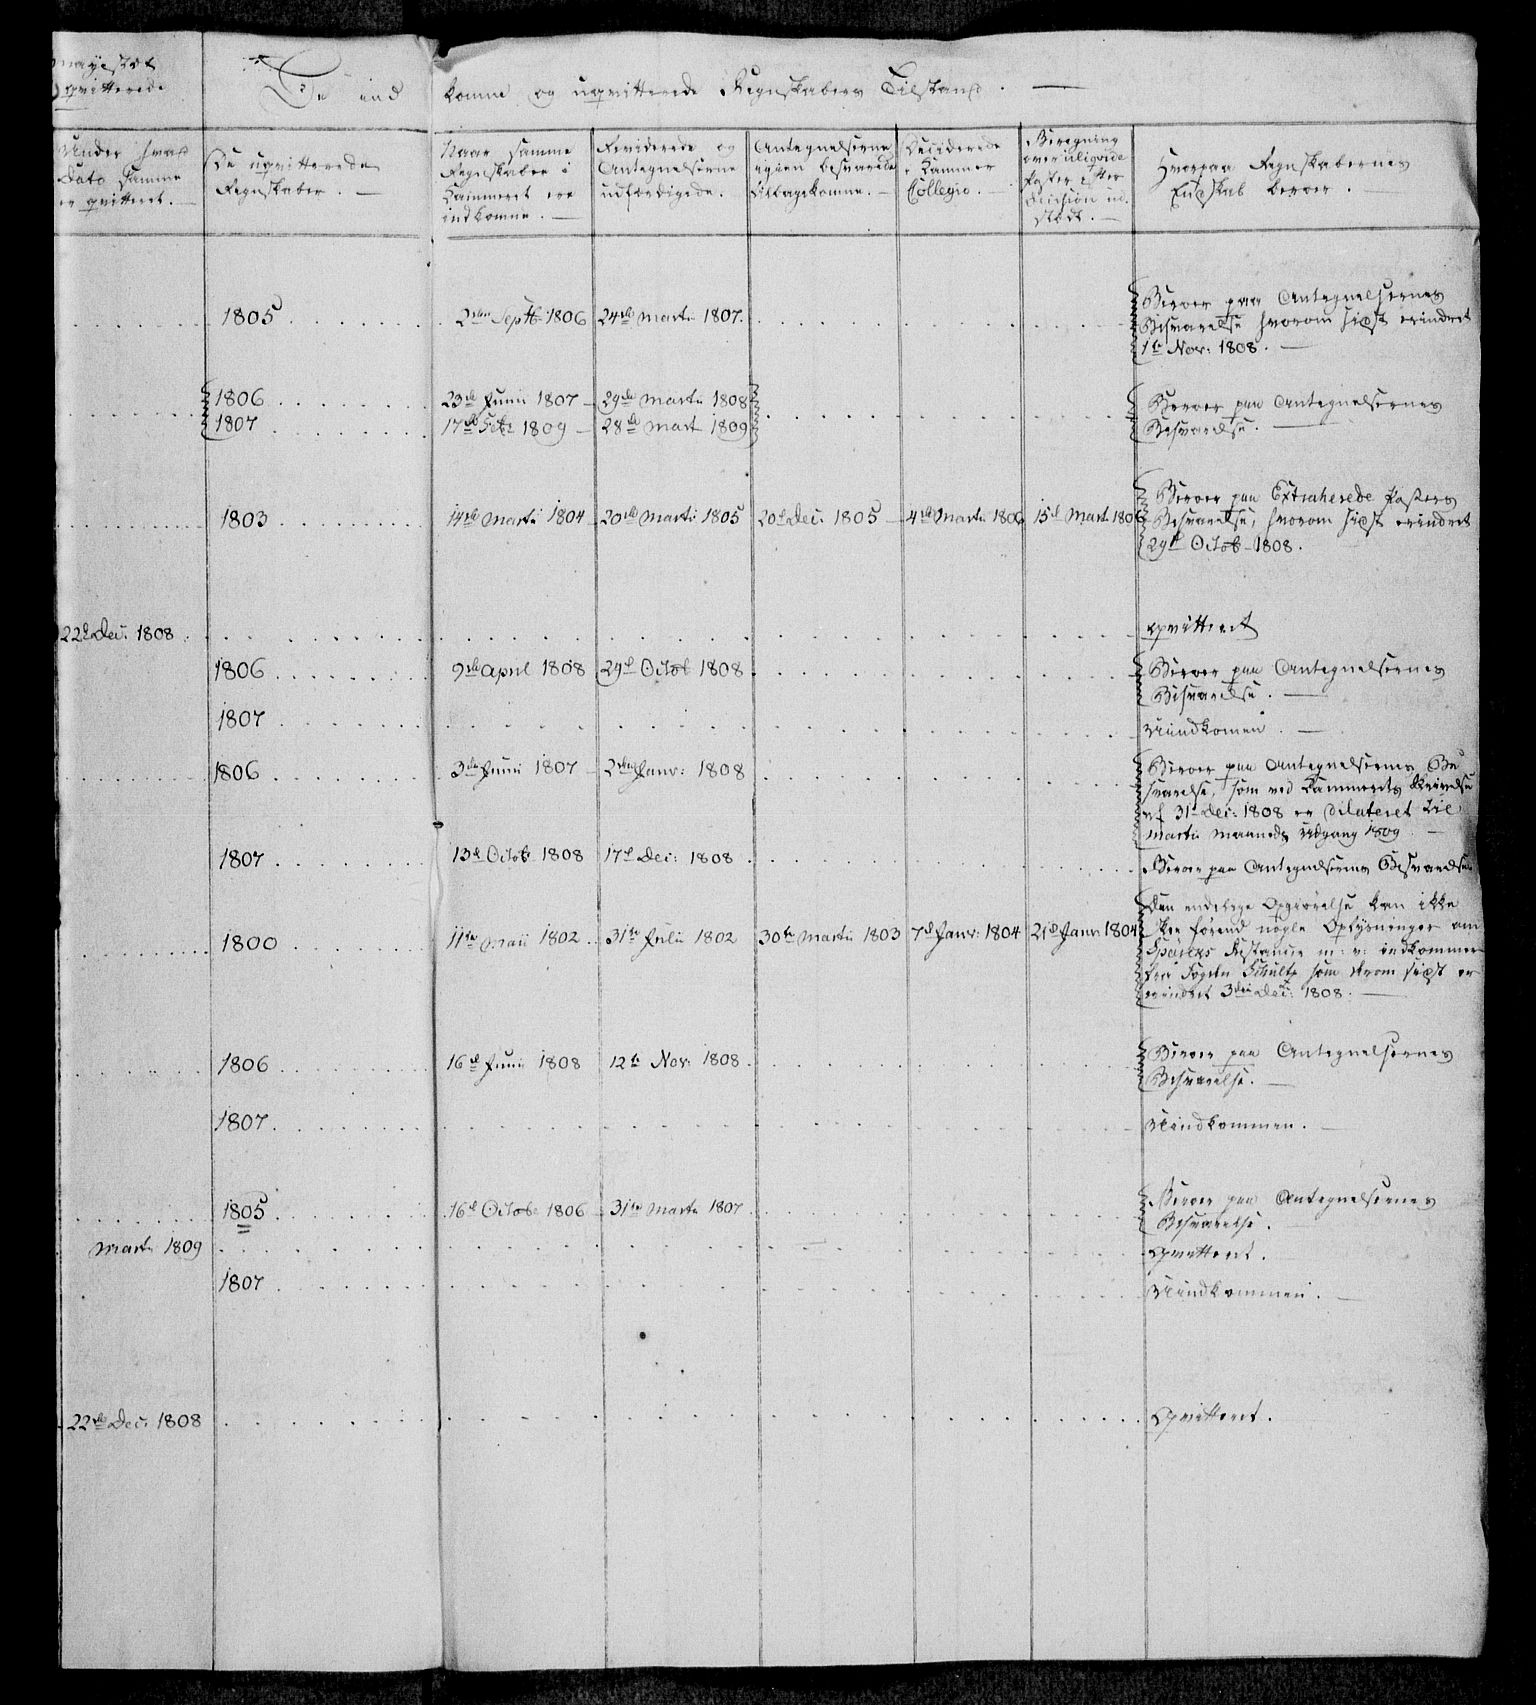 mayestet
qvitterede
De ind komne og uqvitterede Regnskabers Tilstand. —
Under hvad
Dato samme
er qvitteret. —
De uqvitterede
Regnskaber. —
Naar samme
Regnskaber i
Kammeret ere
indkomne. —
Reviderede og
Antegnelserne
udfærdigede.
Antegnelserne
igien besvarede
tilbagekomne. —
Deciderede
i Kammer
Collegio.
Beregning
over uligvide
Poster efter
Decision ud
stædt. —
Hvorpaa Regnskabernes
Endskab beroer.
1805 2den Septb 1806 24de Martii 1807.
Beroer paa Antegnelsernes
Besvarelse hvorom sidst erindret
1te Nov: 1808. —
1806 23de Junii 1807 — 29de Martii 1808
1807 17de Febr 1809 — 28de Mart 1809
Beroer paa Antegnelsernes
Besvarelse. —
1803 14de Martii 1804 20de Martii 1805 20de Dec: 1805 4de Martii 1806 15de Mart 1806
Beroer paa Extraherede Posters
Besvarelse, hvorom sidst erindret
29de Octob 1808.
22de Dec: 1808 qvitteret
1806 9de April 1808 29de Octob 1808
Beroer paa Antegnelsernes
Besvarelse. —
1807 Uindkomen. —
1806 3die Junii 1807 2den Janv: 1808
Beroer paa Antegnelsernes Be
svarelse, som ved Kammerets Skrivelse
af 31 Dec: 1808 er dilateret til
Martii Maaneds Udgang 1809. —
1807 13de Octob 1808 17de Dec: 1808
Beroer paa Antegnelsernes Besvarelse
1800 11te Maii 1802 31te Julii 1802 30te Martii 1803 7de Janv: 1804 21de Janv: 1804
Den endelige Opgiørelse kan ikke
skee førend nogle Oplysninger om
Restancer m: v: indkommer
fra Fogden Schultz som hvorom sidst er
erindret 3die Dec: 1808. —
1806 16de Junii 1808 12te Nov: 1808
Beroer paa Antegnelsernes
Besvarelse. —
1807 Uindkommen. —
1805 16de Octob 1806 31te Martii 1807
Beroer paa Antegnelsernes
Besvarelse.
Marti 1809 qvitteret.
1807 Uindkommen. —
22de Dec: 1808 Qvitteret.